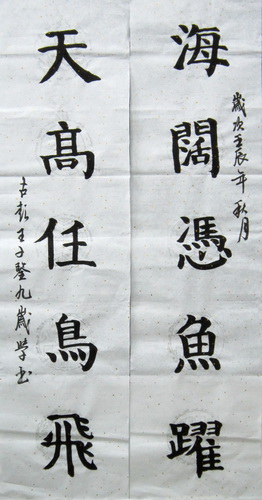 海闊憑魚躍
歲次壬辰年秋月
天高任鳥飛
古彭王子鑒九歲學書